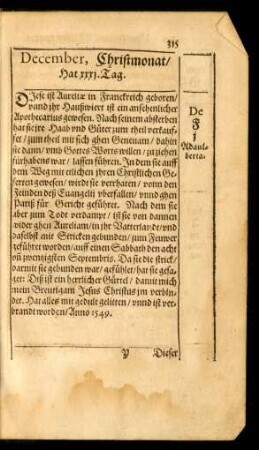 315
December, Christmonat/
Hat xxxj. Tag.
DIese ist Aureliæ in Franckreich geboren/
vnnd jhr Haußwiert ist ein ansehenlicher
Apothecarius gewesen. Nach seinem absterben
hat sie jre Haab vnd Güter zum theil verkauf-
fet/ zum theil mit sich ghen Geneuam/ dahin
sie dann/ vmb Gottes Worts willen/ zuziehen
fürhabens war/ lassen führen. In dem sie auff
dem Weg mit etlichen jhren Christlichen Ge-
ferten gewesen/ wirdt sie verrhaten/ vonn den
Feinden deß Euangelii vberfallen/ vnnd ghen
Pariß für Gericht geführet. Nach dem sie
aber zum Todt verdampt/ ist sie von dannen
wider ghen Aureliam/ in jhr Vatterlandt/ vnd
daselbst mit Stricken gebunden/ zum Feuwer
geführet worden/ auff einen Sabbath den acht
vñ zwentzigsten Septembris. Da sie die strick/
darmit sie gebunden war/ gefühlet/ hat sie gesa-
get: Diß ist ein herrlicher Gürtel/ damit mich
mein Breutigam Jesus Christus jm verbin-
det. Hat alles mit gedult gelitten/ vnnd ist ver-
brandt worden/ Anno 1549.
De
F
j
Adaul-
berta.
y Dieser